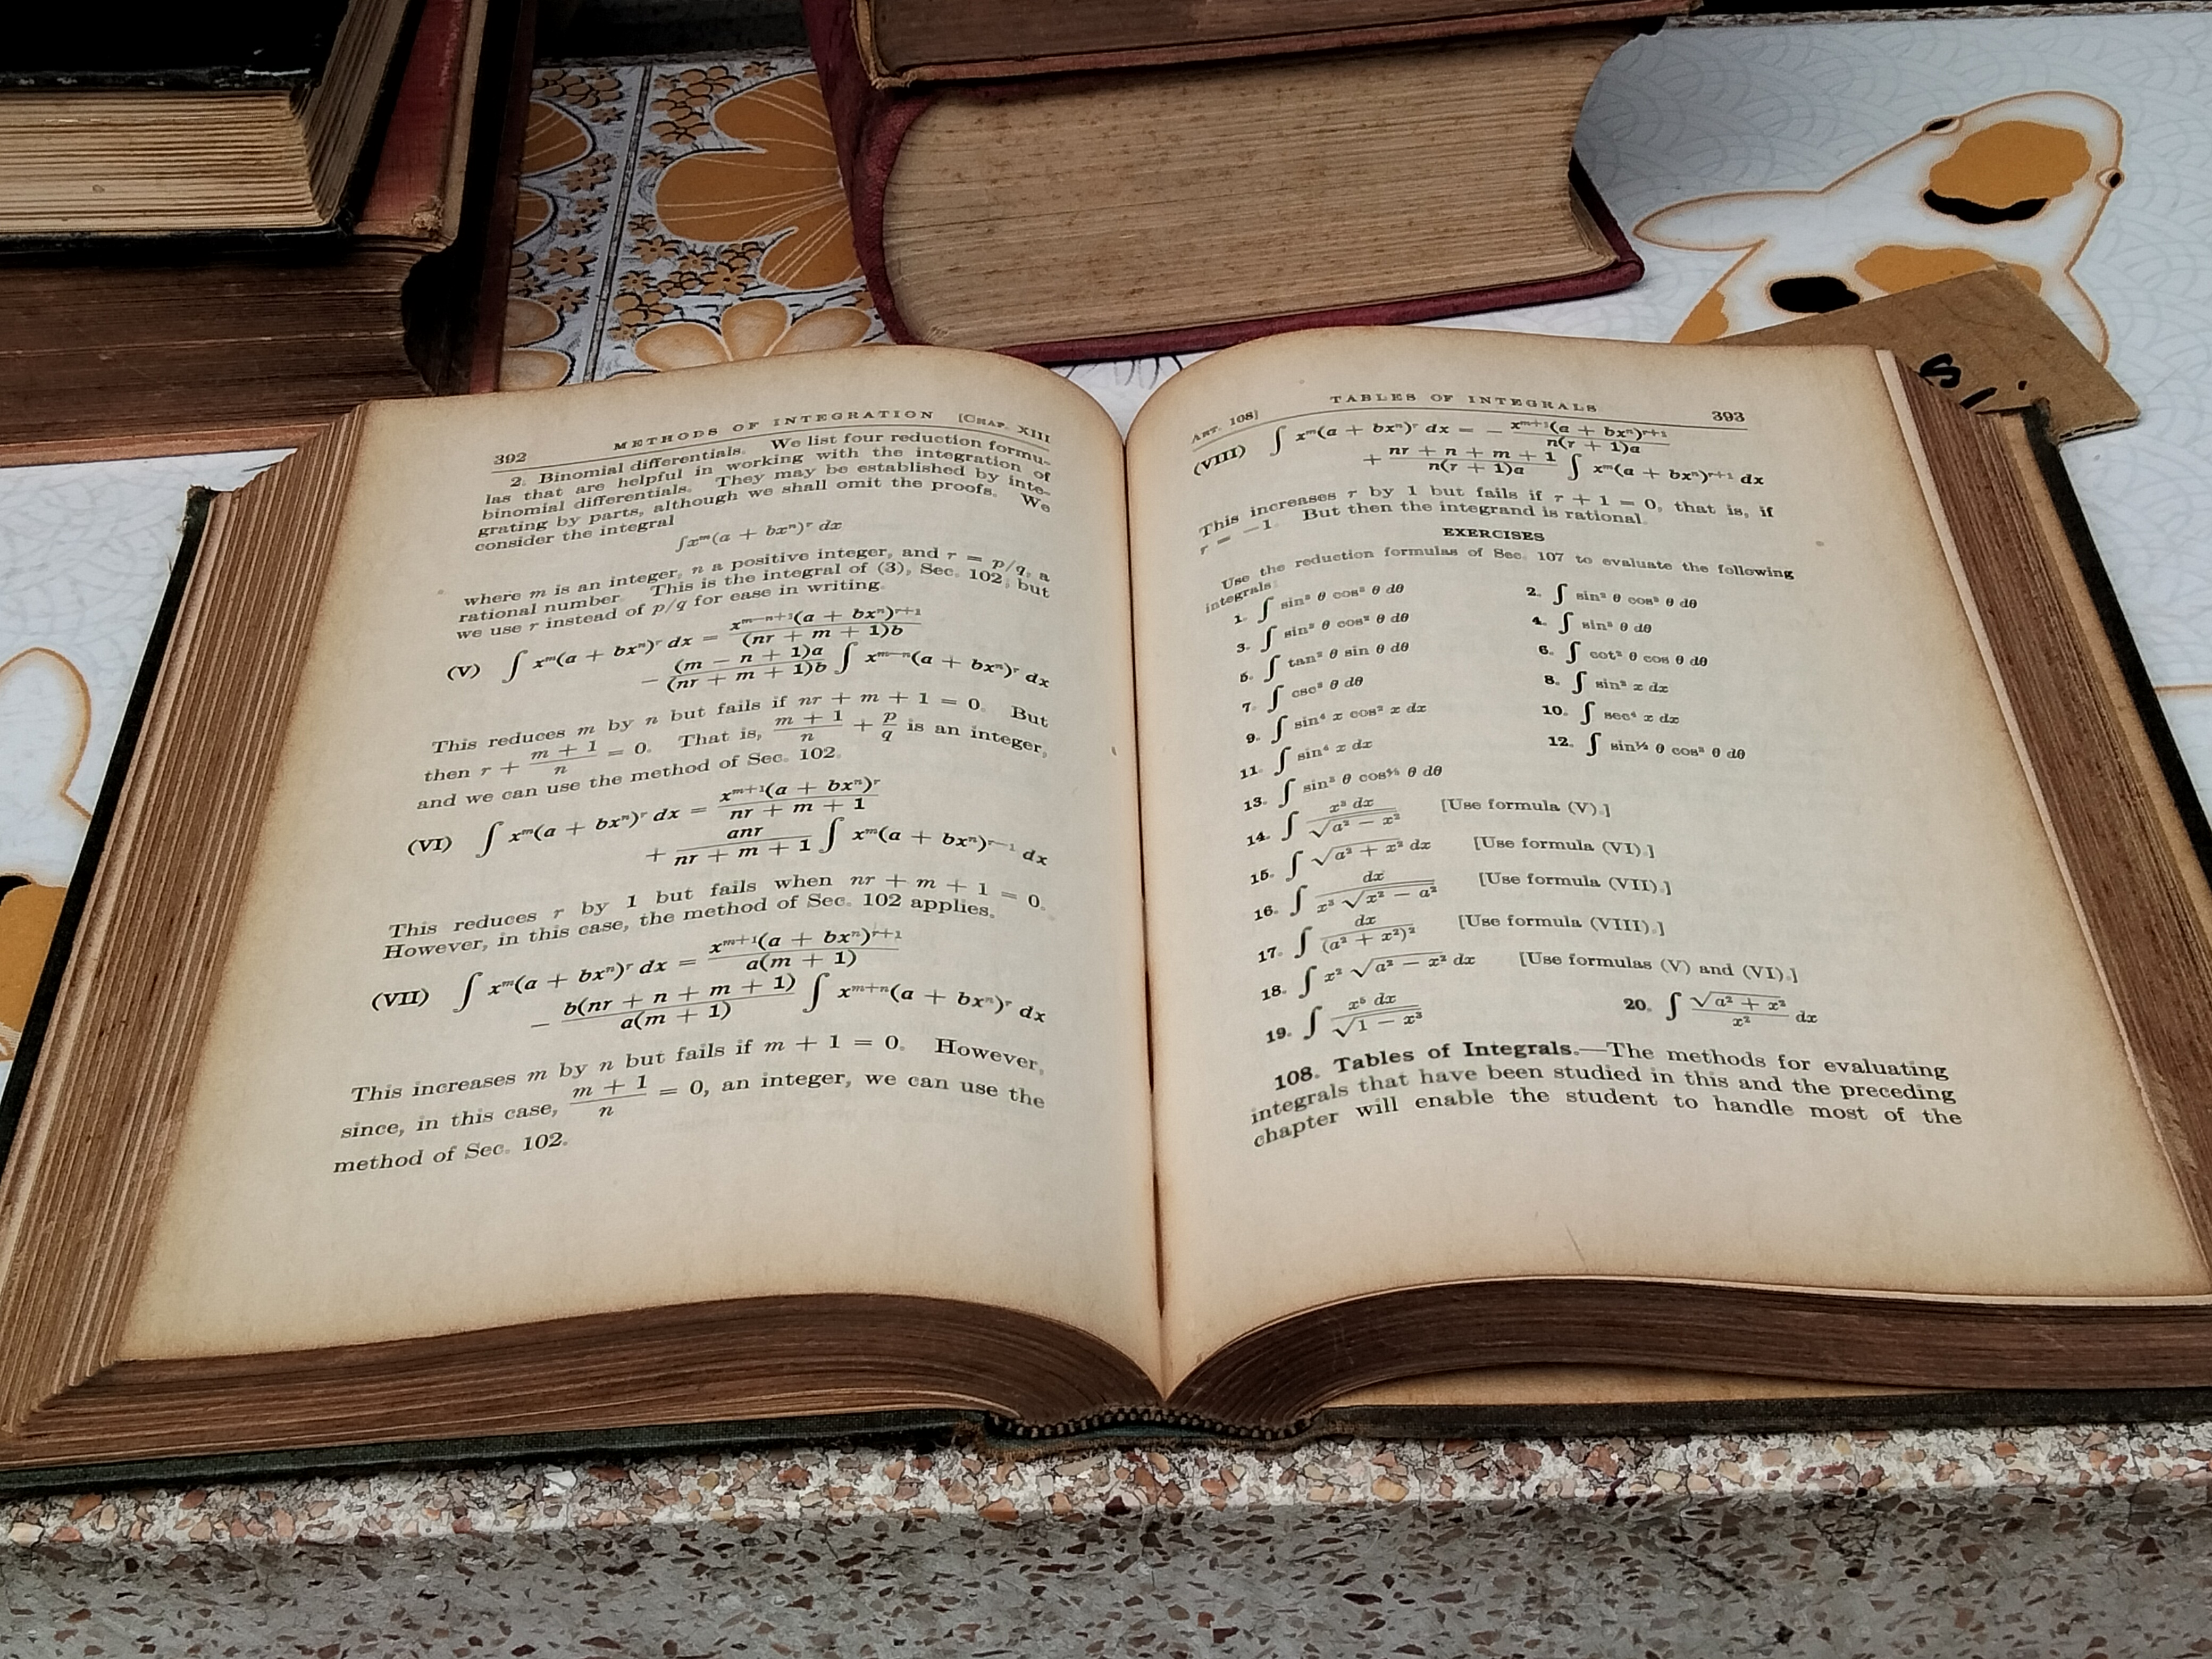 392 METHODS OF INTEGRATION [CHAP. XIII
2. Binomial differentials. We list four reduction formu-
las that are helpful in working with the integration of
binomial differentials. They may be established by inte-
grating by parts, although we shall omit the proofs. We
consider the integral
∫xᵐ(a + bxⁿ)ʳ dx
where m is an integer, n a positive integer, and r = p/q, a
rational number. This is the integral of (3), Sec. 102, but
we use r instead of p/q for ease in writing.
(V) ∫ xᵐ(a + bxⁿ)ʳ dx = xᵐ⁻ⁿ⁺¹(a + bxⁿ)ʳ⁺¹ / (nr + m + 1)b
− (m − n + 1)a / (nr + m + 1)b ∫ xᵐ⁻ⁿ(a + bxⁿ)ʳ dx
This reduces m by n but fails if nr + m + 1 = 0. But
then r + (m + 1)/n = 0. That is, (m + 1)/n + p/q is an integer,
and we can use the method of Sec. 102.
(VI) ∫ xᵐ(a + bxⁿ)ʳ dx = xᵐ⁺¹(a + bxⁿ)ʳ / nr + m + 1
+ anr / nr + m + 1 ∫ xᵐ(a + bxⁿ)ʳ⁻¹ dx
This reduces r by 1 but fails when nr + m + 1 = 0.
However, in this case, the method of Sec. 102 applies.
(VII) ∫ xᵐ(a + bxⁿ)ʳ dx = xᵐ⁺¹(a + bxⁿ)ʳ⁺¹ / a(m + 1)
− b(nr + n + m + 1) / a(m + 1) ∫ xᵐ⁺ⁿ(a + bxⁿ)ʳ dx
This increases m by n but fails if m + 1 = 0. However,
since, in this case, (m + 1)/n = 0, an integer, we can use the
method of Sec. 102.
ART. 108] TABLES OF INTEGRALS 393
(VIII) ∫ xᵐ(a + bxⁿ)ʳ dx = − xᵐ⁺¹(a + bxⁿ)ʳ⁺¹ / n(r + 1)a
+ nr + n + m + 1 / n(r + 1)a ∫ xᵐ(a + bxⁿ)ʳ⁺¹ dx
This increases r by 1 but fails if r + 1 = 0, that is, if
r = −1. But then the integrand is rational.
EXERCISES
Use the reduction formulas of Sec. 107 to evaluate the following
integrals:
1. ∫ sin θ cos θ dθ 2. ∫ sin θ cos θ dθ
3. ∫ sin θ cos θ dθ 4. ∫ sin θ dθ
5. ∫ tan θ sin θ dθ 6. ∫ cot θ cos θ dθ
7. ∫ csc θ dθ 8. ∫ sin x dx
9. ∫ sin⁴ x cos² x dx 10. ∫ sec⁴ x dx
11. ∫ sin⁴ x dx 12. ∫ sin θ cos θ dθ
13. ∫ sin θ cos θ dθ
14. ∫ x³ dx / √a² − x² [Use formula (V).]
15. ∫ √a² + x² dx [Use formula (VI).]
16. ∫ dx / x³ √x² − a² [Use formula (VII).]
17. ∫ dx / (a² + x²)² [Use formula (VIII).]
18. ∫ x² √a² − x² dx [Use formulas (V) and (VI).]
19. ∫ x⁵ dx / √1 − x³ 20. ∫ √a² + x² / x² dx
108. Tables of Integrals.—The methods for evaluating
integrals that have been studied in this and the preceding
chapter will enable the student to handle most of the